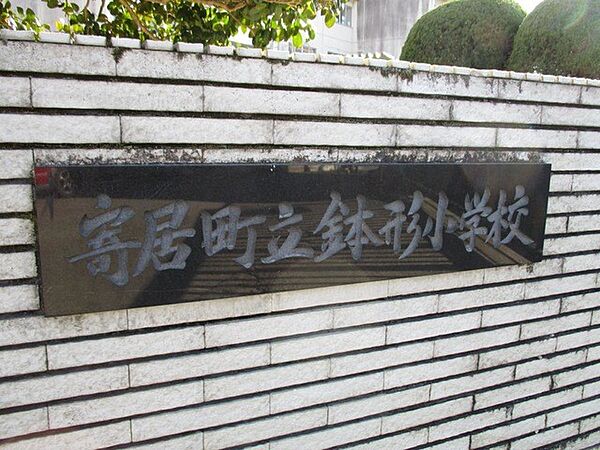 寄居町立鉢形小学校